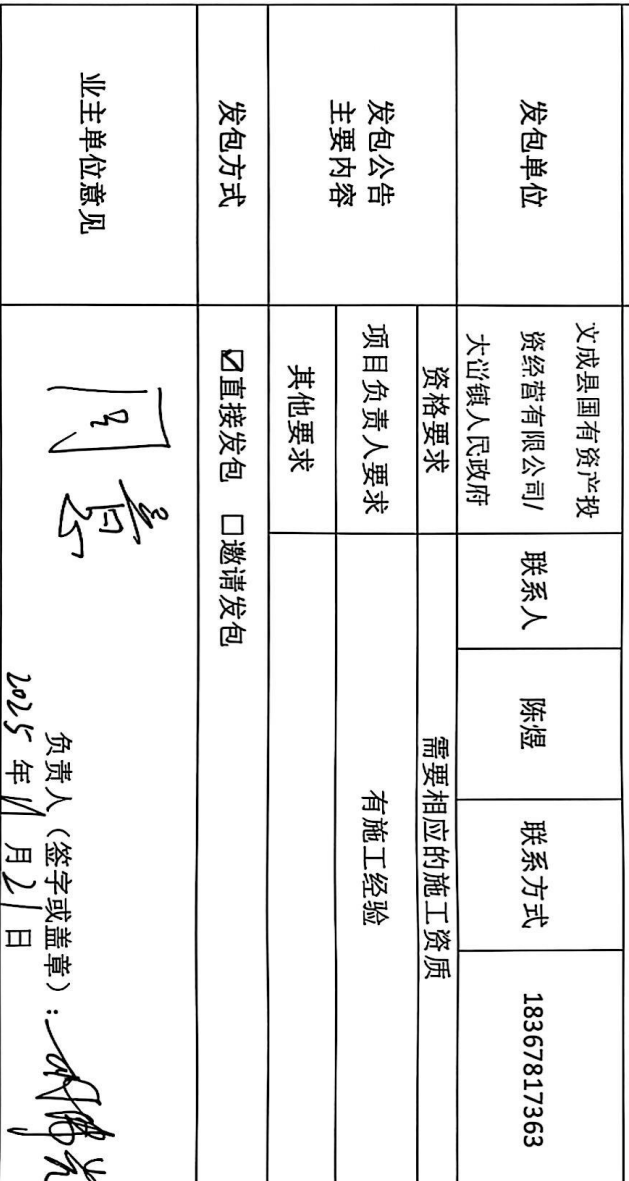 发包单位
文成县国有资产投
资经营有限公司/
大峃镇人民政府
联系人
陈煜
联系方式
18367817363
发包公告
主要内容
资格要求
需要相应的施工资质
项目负责人要求
有施工经验
其他要求
发包方式
☑直接发包 □邀请发包
业主单位意见
同意
负责人（签字或盖章）：
2025年11月21日